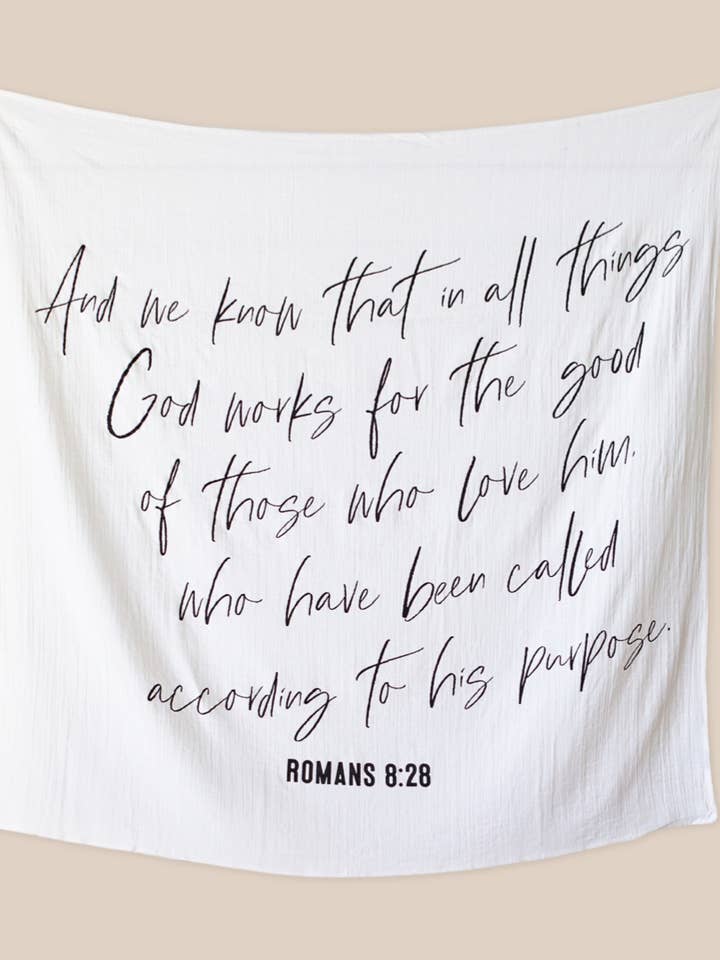 And we know that in all things
God works for the good
of those who love him.
who have been called
according to his purpose.
ROMANS 8:28